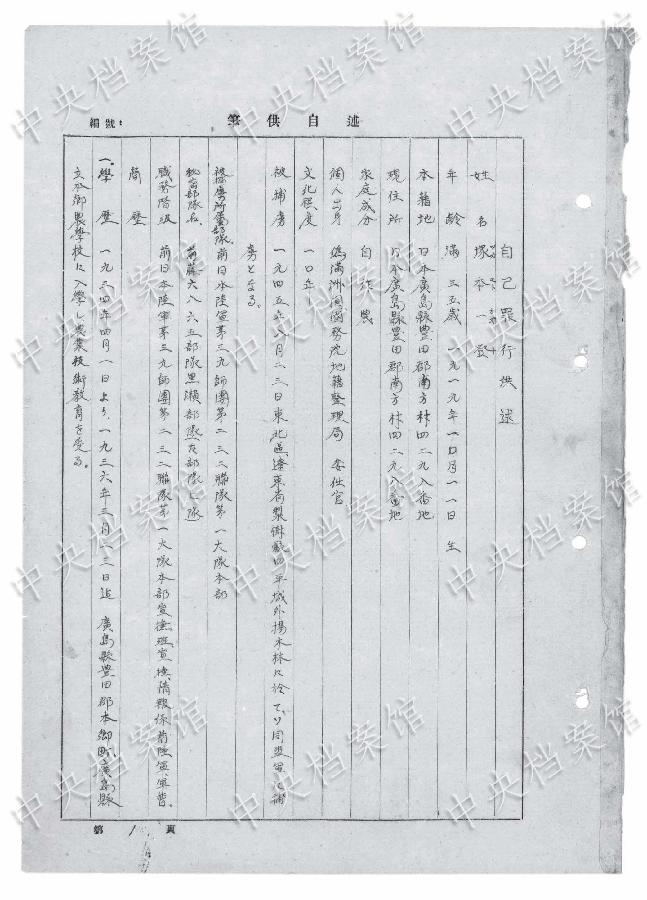 述自供筆
編號：
自己罪行供述
姓名 塚本一登
年齡 滿三五歲 一九一九年一〇月一一日生
本籍地 日本廣島縣豊田郡南方村四二九八番地
現住所 日本廣島縣豊田郡南方村四二九八番地
家庭成分 自作農
個人出身 偽滿洲国国務院地籍整理局 委任官
文化程度 一〇年
被捕虜 一九四五年八月二三日東北區遼東省 四平城外揚木林に於て、ソ同盟軍に捕
虜となる。
被捕虜所屬部隊 前日本陸軍第三九師團第二三二聯隊第一大隊本部
秘密部隊名 前藤六八六五部隊黒瀬部隊
職務階級 前日本陸軍第三九師團第二三二聯隊第一大隊本部宣撫班宣撫、情報係前陸軍軍曹。
簡歷
一、學歷 一九三四年四月一日より、一九三六年三月一三日迄 廣島縣豊田郡本鄉町、廣島縣
立本鄉農學校に入學し農業技術教育を受る。
第1頁
中央档案馆